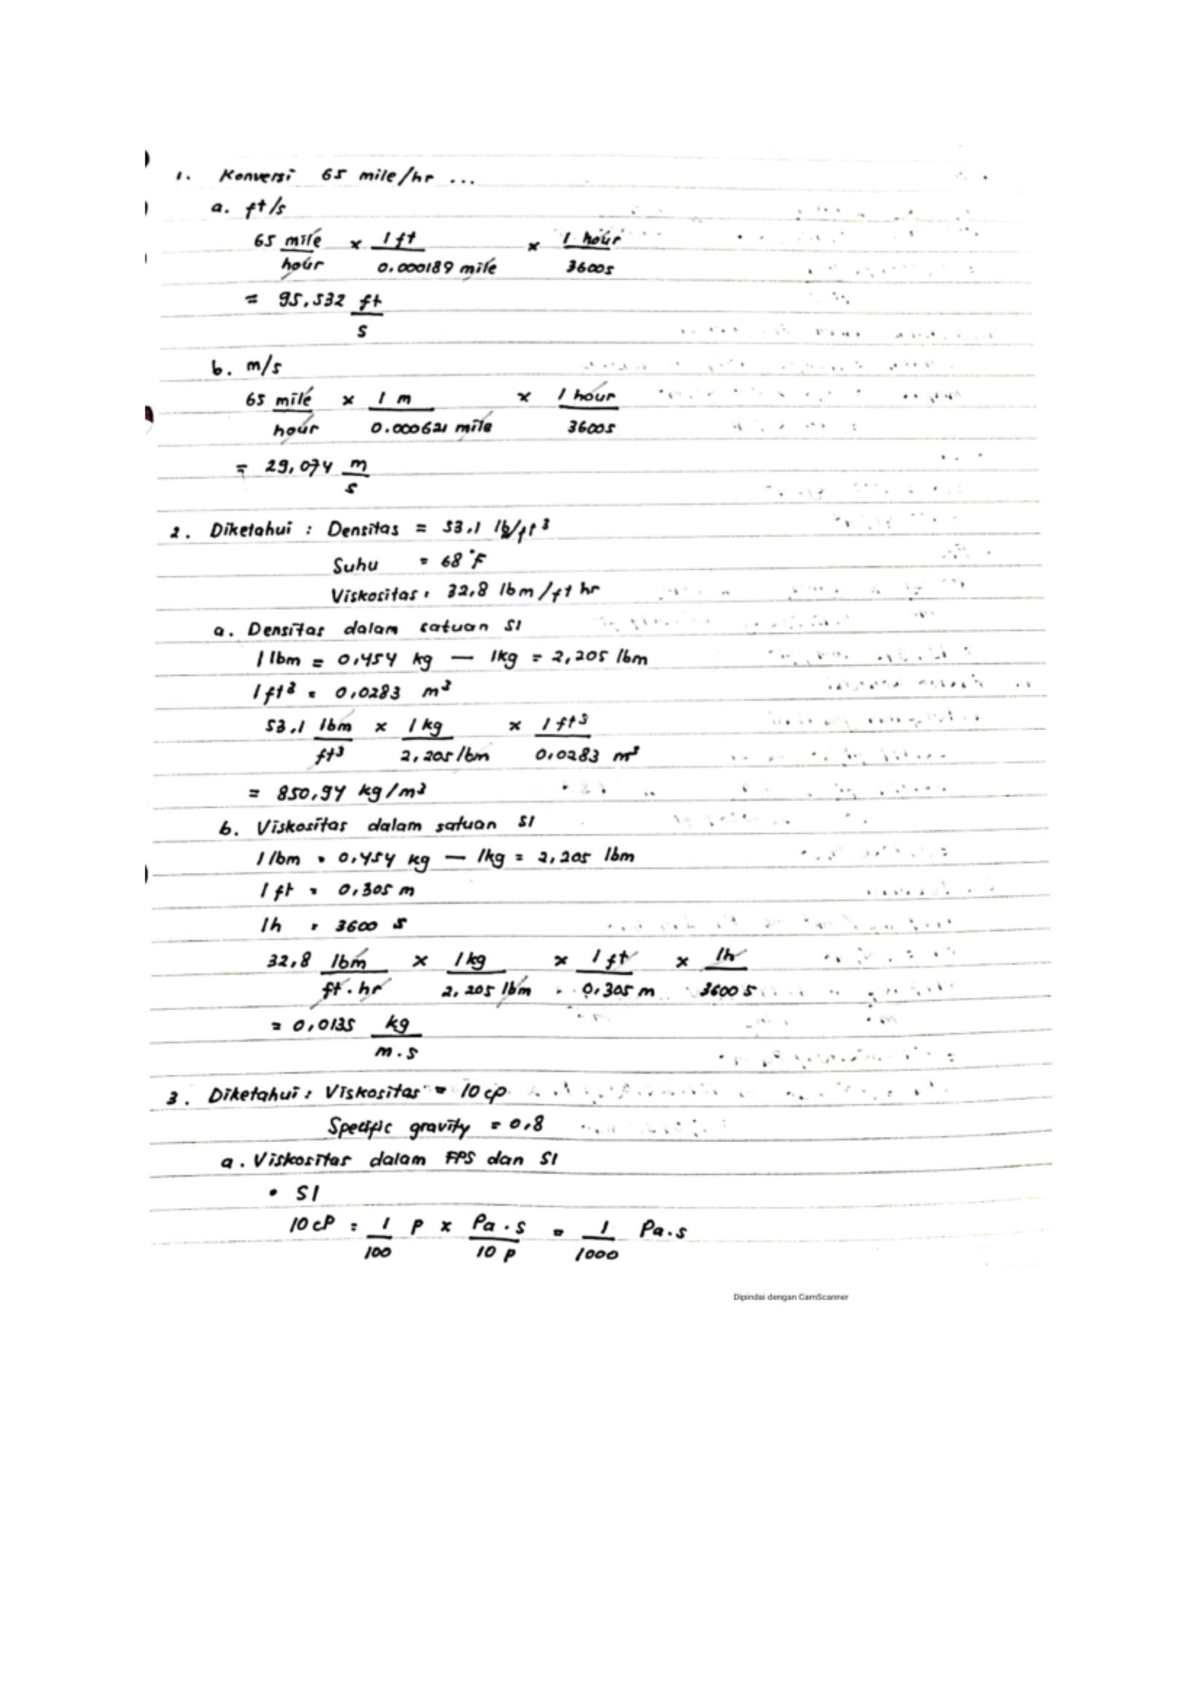 1. Konversi 65 mile/hr ...
a. ft/s
65 mile/hour x 1 ft/0.000189 mile x 1 hour/3600s
= 95,532 ft/s
b. m/s
65 mile/hour x 1 m/0.000621 mile x 1 hour/3600s
= 29,074 m/s
2. Diketahui : Densitas = 53.1 lb/ft³
Suhu = 68°F
Viskositas : 32,8 lbm/ft hr
a. Densitas dalam satuan SI
1 lbm = 0,454 kg — 1kg = 2,205 lbm
1 ft³ = 0,0283 m³
53,1 lbm/ft³ x 1 kg/2,205 lbm x 1 ft³/0,0283 m³
= 850,94 kg/m³
b. Viskositas dalam satuan SI
1 lbm = 0,454 kg — 1kg = 2,205 lbm
1 ft = 0,305 m
1h = 3600 s
32,8 lbm/ft.hr x 1 kg/2,205 lbm x 1 ft/0,305 m x 1h/3600 s
= 0,0135 kg/m.s
3. Diketahui : Viskositas = 10 cp
Specific gravity = 0,8
a. Viskositas dalam FPS dan SI
• SI
10 cP = 1/100 P x Pa.s/10 P = 1/1000 Pa.s
Dipindai dengan CamScanner